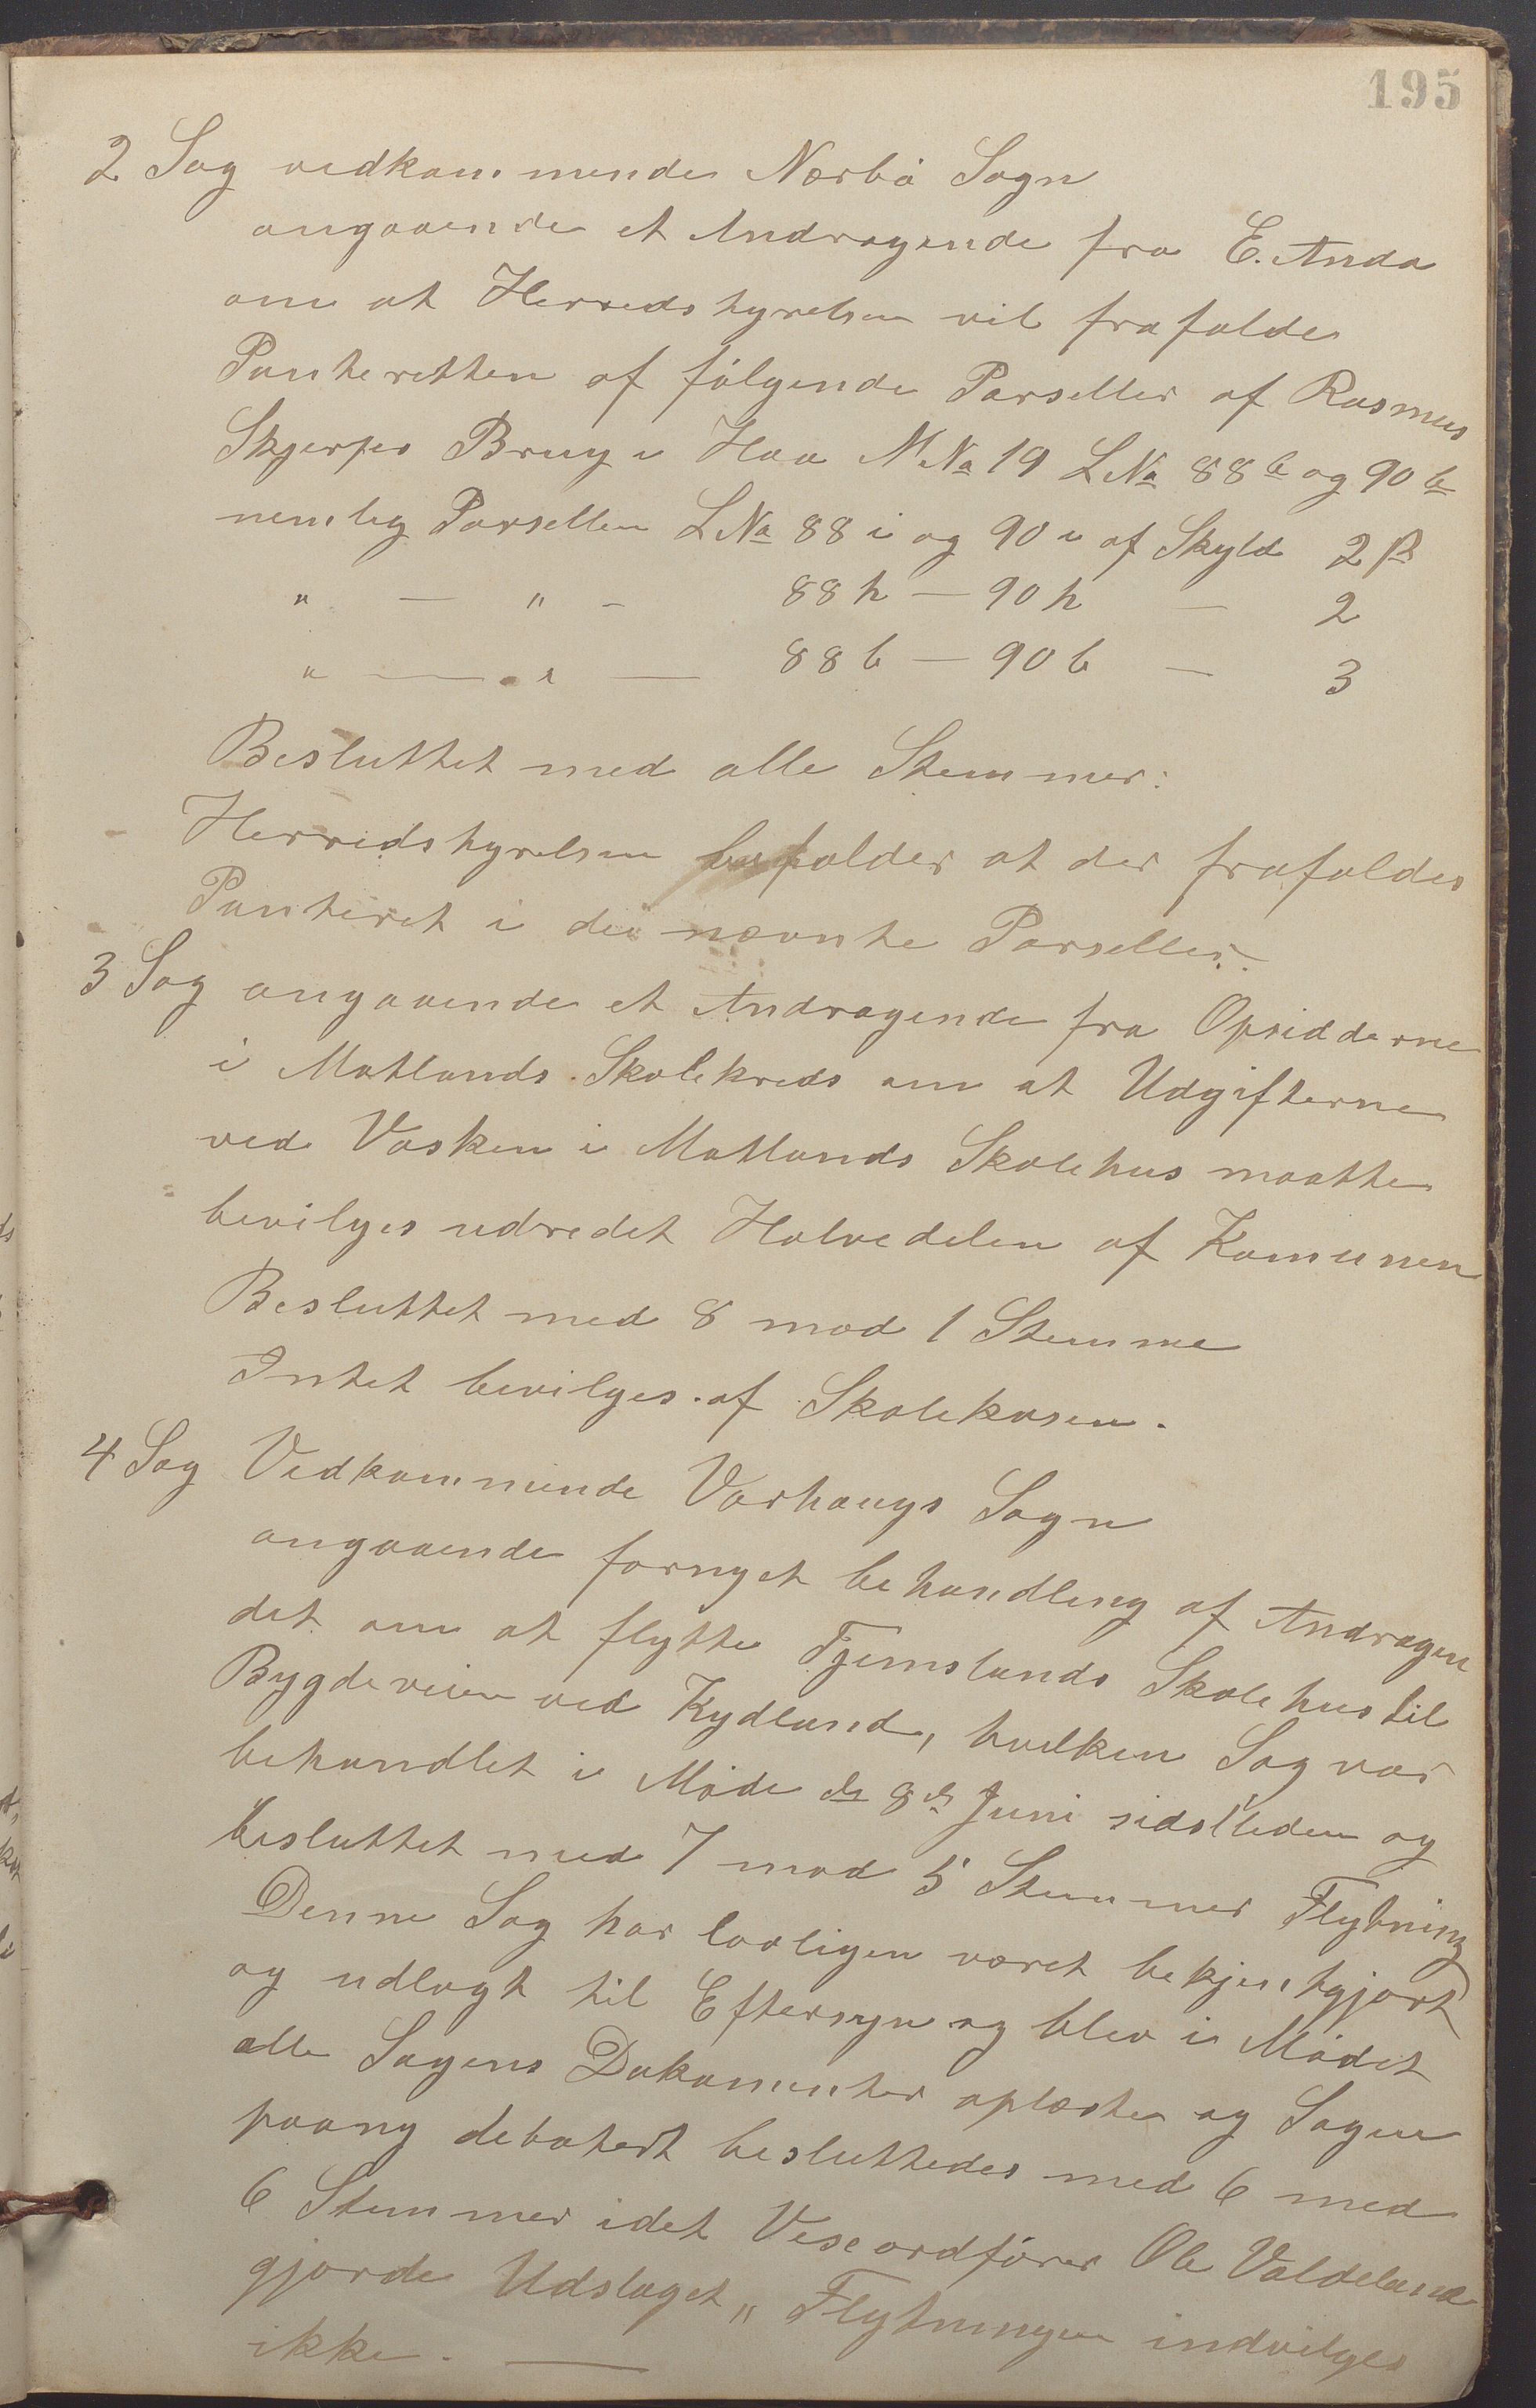 195
2 Sag vedkommende Nærbø Sogn
angaaende et Andragende fra E. Anda
om at Herredstyrelsen vil frafalde
Panteretten af følgende Parseller af Rasmus
Skjerpes Brug i Haa M No 19 L No 88 b og 90 b
nemlig Parsellen L No 88 i og 90 i af Skyld 2 ß
" — " - 88 h — 90 h — 2
" — " — 88 b — 90 b — 3
Besluttet med alle Stemmer:
Herredstyrelsen at der frafaldes
Panteret i de nævnte Parseller.
3 Sag angaaende et Andragende fra Opsidderne
i Motlands Skolekreds om at Udgifterne
ved Vasken i Motlands Skolehus maatte
bevilges udredet Halvedelen af Komunen
Besluttet med 8 mod 1 Stemme
Intet bevilges af Skolekasen.
4 Sag Vedkommende Varhaugs Sogn
angaaende fornyet behandling af Andragen
det om at flytte Tjemslands Skolehus til
Bygdeveien ved Kydland, hvilken Sag var
behandlet i Møde d 8de Juni sidstleden og
besluttet med 7 mod 5 Stemmer Flytning
Denne Sag har lovligen været bekjentgjort
og udlagt til Eftersyn og blev i Mødet
alle Sagens Dokumenter oplæste og Sagen
paany debatert besluttedes med 6 med
6 Stemmer idet Viseordfører Ole Valdeland
gjorde Udslaget „ Flytningen indvilges
ikke. —